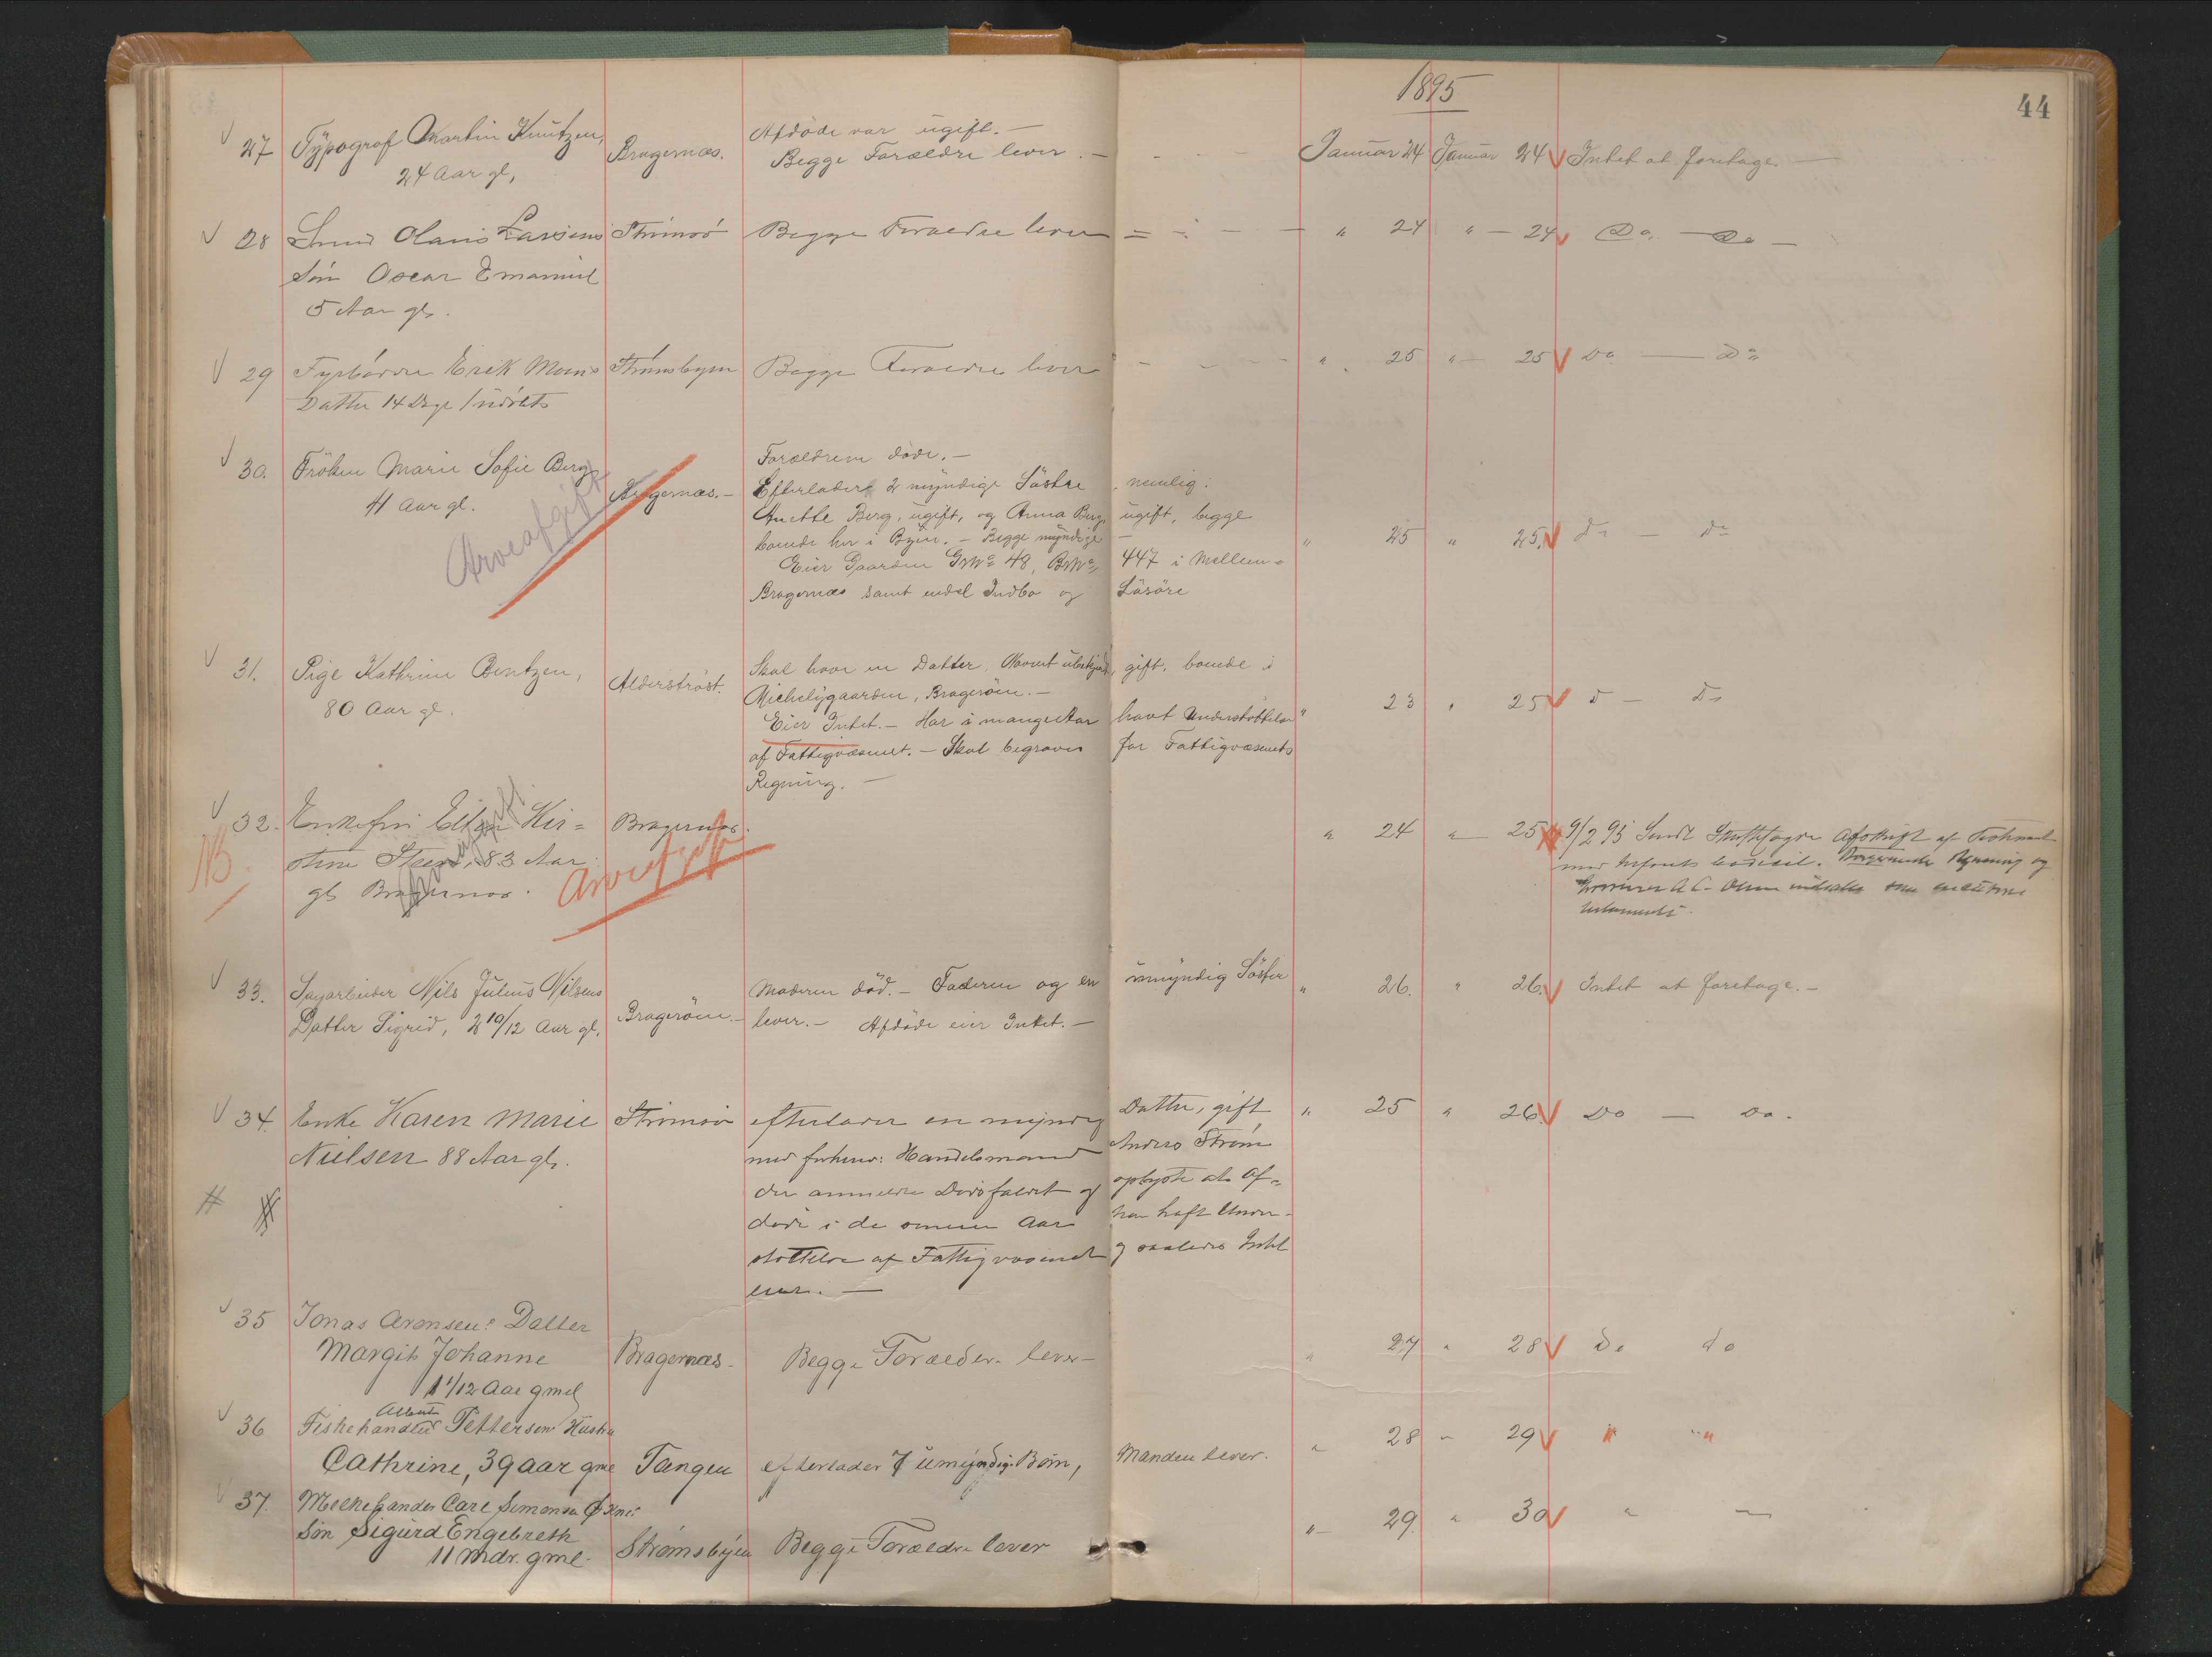 1895
44
27 Typograf Martin Knutzen,
24 Aar gl,
Bragernæs.
Afdöde var ugift. —
Begge Forældre lever. —
Januar 24 Januar 24 Intet at foretage. —
28 Smed Olaus Larsens
Sön Oscar Emanuel
5 Aar gl.
Strömsö
Begge Forældre lever
" 24 " — 24 Do. — Do —
29 Fyrbörder Erik Moens
Datter 14 Dage /udöbt
Strömsbyen
Begge Forældre lever
" 25 " — 25 Do — Do
30. Fröken Marie Sofie Berg
41 Aar gl.
Arveafgift
Bragernæs. —
Forældrene döde. —
Efterlader 2 myndige Söstre, nemlig:
Anette Berg, ugift, og Anna Berg, ugift, begge
boende her i Byen. — Begge myndige —
Eier Gaarden GrNo 48, BrNo 447 i Mellem-
Bragernæs samt endel Indbo og Lösöre
" 25 " 25. Do — Do
31. Pige Kathrine Bentzen,
80 Aar gl.
Alderströst.
Skal have en Datter, Navnet ubekjendt, gift, boende i
Michelsgaarden, Bragerøen. —
Eier Intet. — Har i mange Aar havt Understöttelse
af Fattigvæsenet. — Skal begraves for Fattigvæsenets
Regning. —
" 23 " 25 Do — Do
32. Enkefru Ellen Kir=
stine Steen, 83 Aar
gl Bragernæs.
NB.
Arveafgift
Bragernæs.
Arveafgift
" 24 " — 25 9/2 95 Sendt Skiftefogden Afskrift af Testament
med codicil. og
A. C. Olsen som
testamenti.
33. Sagarbeider Nils Julius Nilsens
Datter Sigrid, 2 10/12 Aar gl.
Bragerøen. —
Moderen död. — Faderen og en umyndig Söster
lever. — Afdöde eier Intet. —
" 26. " 26. Intet at foretage. —
34. Enke Karen Marie
Nielsen 88 Aar gl.
Strömsö
efterlader en myndig Datter, gift
med forhenv: Handelsmand Anders Ström
der anmeldte Dødsfaldet og oplyste at Af=
døde i de senere Aar har haft Under=
støttelse af Fattigvæsenet og saaledes Intet
eier. —
" 25 " 26. Do — Do.
35 Jonas Aronsens Datter
Margit Johanne
1 1/12 Aar gmel
Bragernæs —
Begge Forældre lever —
" 27 " 28 Do do
36 Fiskehandler Albert Pettersens Hustru
Cathrine, 39 aar gml
Tangen
efterlader 7 umyndige Børn, Manden lever.
" 28 " 29 " "
37. Melkehandler Carl Simonsen
Søn Sigurd Engebreth
11 mdr. gml.
Strømsbyen
Begge Forældre lever
" 29. " 30 " —